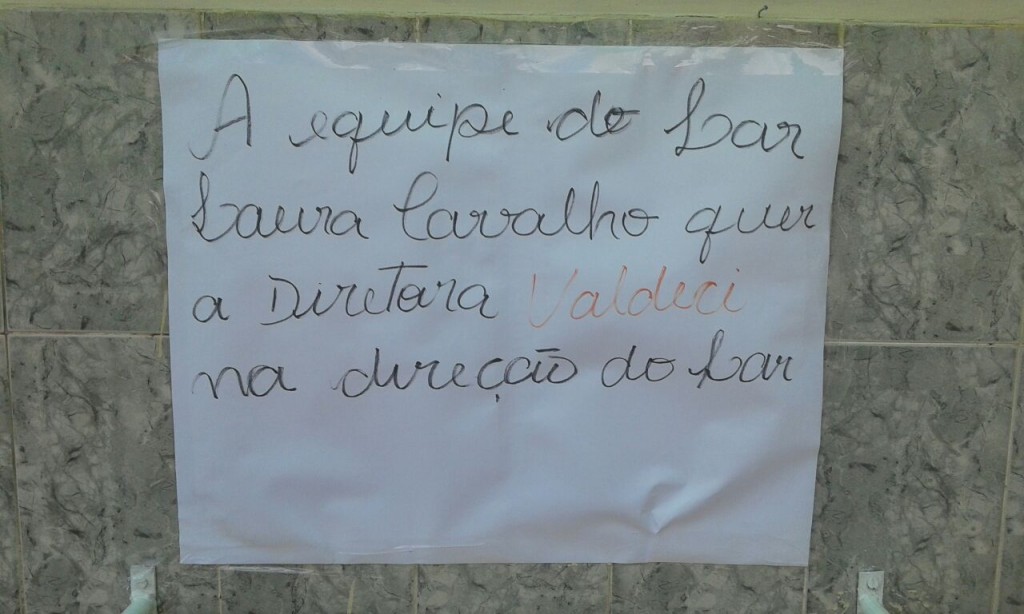 A equipe do Lar
Laura Carvalho quer
a Diretora Valdeci
na direção do Lar